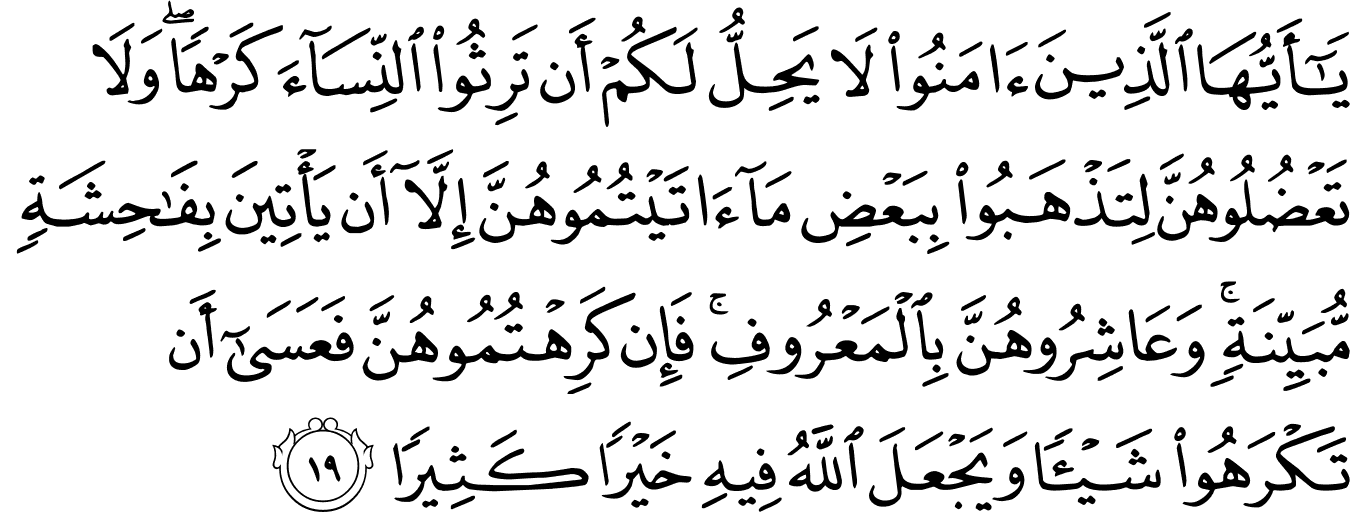 يَـٰٓأَيُّهَا ٱلَّذِينَ ءَامَنُوا۟ لَا يَحِلُّ لَكُمْ أَن تَرِثُوا۟ ٱلنِّسَآءَ كَرْهًا ۖ وَلَا
تَعْضُلُوهُنَّ لِتَذْهَبُوا۟ بِبَعْضِ مَآ ءَاتَيْتُمُوهُنَّ إِلَّآ أَن يَأْتِينَ بِفَـٰحِشَةٍ
مُّبَيِّنَةٍ ۚ وَعَاشِرُوهُنَّ بِٱلْمَعْرُوفِ ۚ فَإِن كَرِهْتُمُوهُنَّ فَعَسَىٰٓ أَن
تَكْرَهُوا۟ شَيْـًٔا وَيَجْعَلَ ٱللَّهُ فِيهِ خَيْرًا كَثِيرًا ١٩